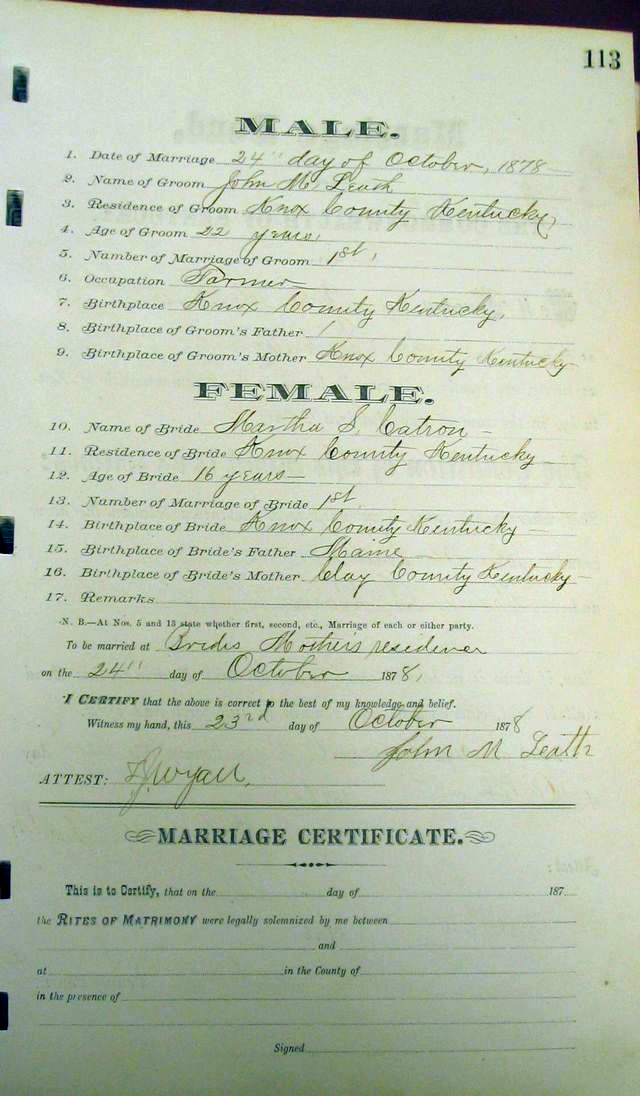 113
MALE.
1. Date of Marriage 24" day of October, 1878
2. Name of Groom John M. Leath
3. Residence of Groom Knox County Kentucky
4. Age of Groom 22 years,
5. Number of Marriage of Groom 1st,
6. Occupation Farmer
7. Birthplace Knox County Kentucky,
8. Birthplace of Groom's Father
9. Birthplace of Groom's Mother Knox County Kentucky
FEMALE.
10. Name of Bride Martha S. Catron
11. Residence of Bride Knox County Kentucky
12. Age of Bride 16 years
13. Number of Marriage of Bride 1st
14. Birthplace of Bride Knox County Kentucky
15. Birthplace of Bride's Father Maine
16. Birthplace of Bride's Mother Clay County Kentucky
17. Remarks
N. B.—At Nos. 5 and 13 state whether first, second, etc., Marriage of each or either party.
To be married at Brides Mother's residence
on the 24" day of October 1878,
I CERTIFY that the above is correct to the best of my knowledge and belief.
Witness my hand, this 23rd day of October 1878
John M Leath
ATTEST:
MARRIAGE CERTIFICATE.
This is to Certify, that on the day of 187
the RITES OF MATRIMONY were legally solemnized by me between
and
at in the County of
in the presence of
Signed